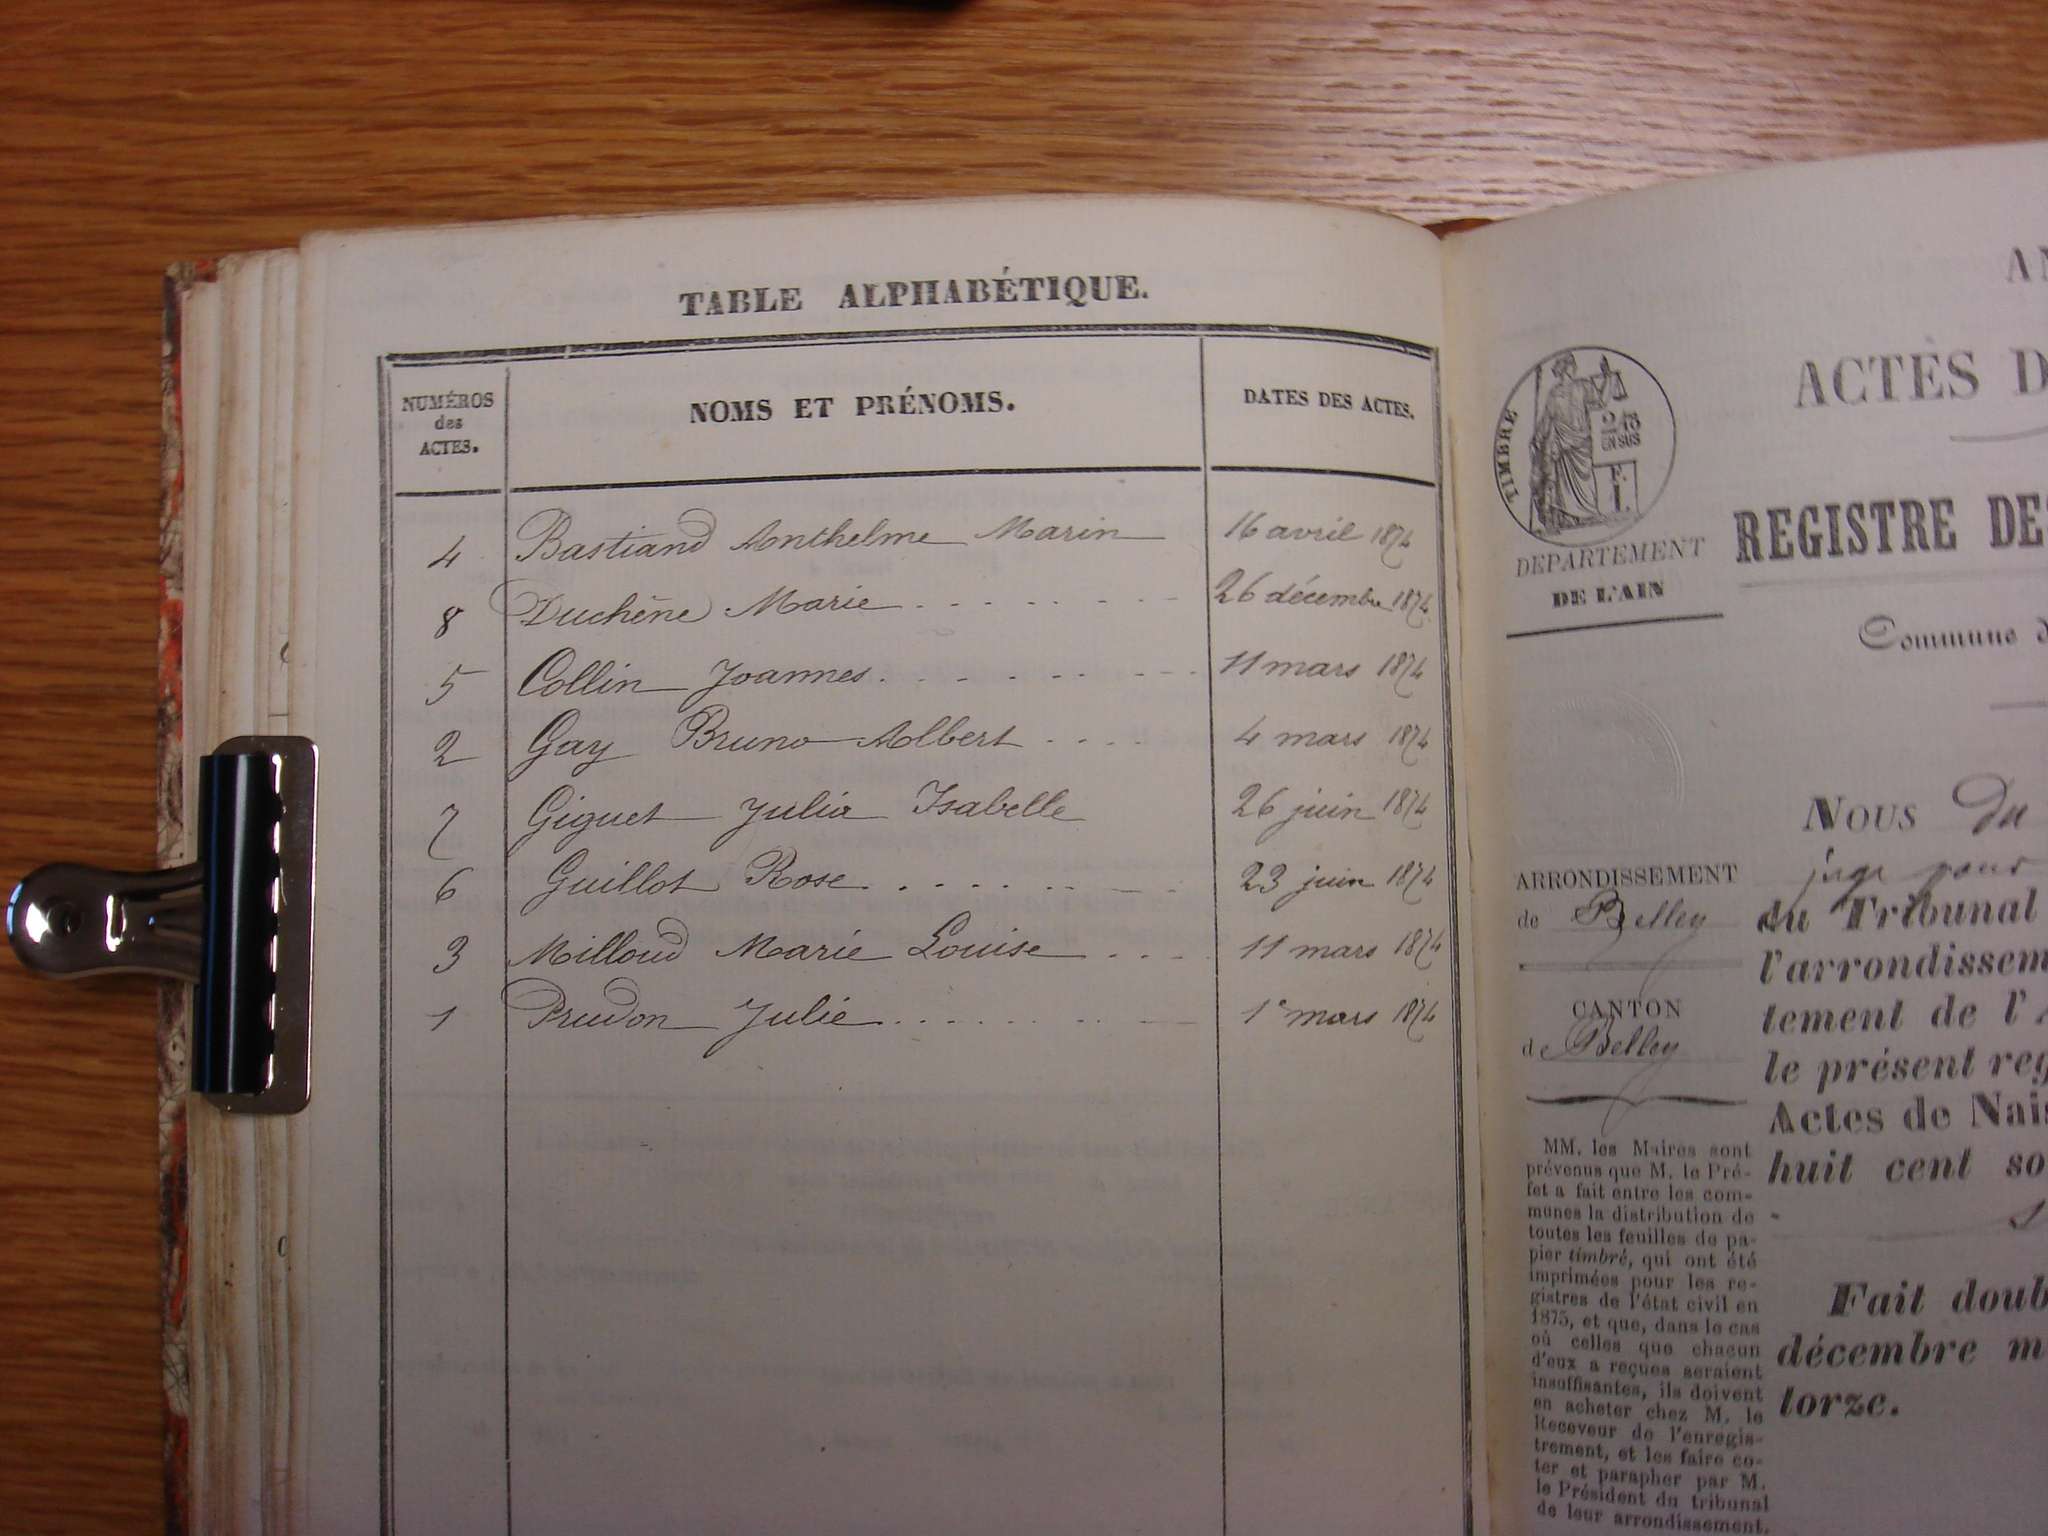 TABLE ALPHABÉTIQUE.
NUMÉROS des ACTES. NOMS ET PRÉNOMS. DATES DES ACTES.
4 Bastiand Anthelme Marin 16 avril 1874
8 Duchêne Marie 26 décembre 1874
5 Collin Joannes 11 mars 1874
2 Gay Bruno Albert 4 mars 1874
7 Giguet Julia Isabelle 26 juin 1874
6 Guillot Rose 23 juin 1874
3 Milloud Marie Louise 11 mars 1874
1 Prudon Julie 1e mars 1874
ACTES
TIMBRE
2/10
EN SUS
1 F.
REGISTRE
DÉPARTEMENT
DE L'AIN
Commune
NOUS Du
juge pour
ARRONDISSEMENT
de Belley
du Tribunal
CANTON
de Belley
tement de l'
le présent
Actes de
huit cent
MM. les Maires sont
prévenus que M. le Pré-
fet a fait entre les com-
munes la distribution de
toutes les feuilles de pa-
pier timbré, qui ont été
imprimées pour les re-
gistres de l'état civil en
1875, et que, dans le cas
où celles que chacun
d'eux a reçues seraient
insuffisantes, ils doivent
en acheter chez M. le
Receveur de l'enregis-
trement, et les faire co-
ter et parapher par M.
le Président du tribunal
de leur arrondissement.
Fait
décembre
torze.